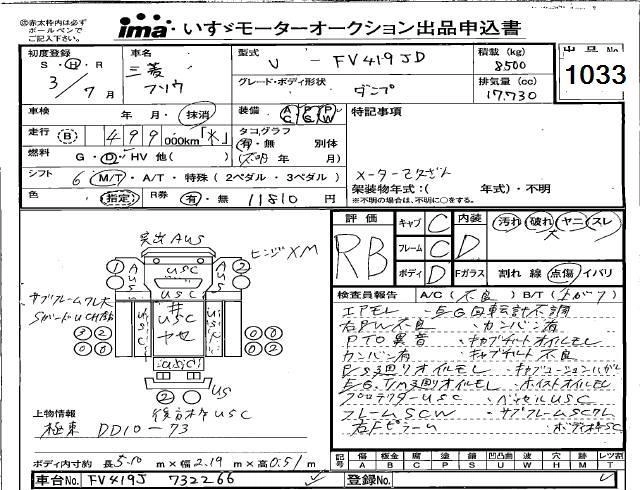 ㊟赤太枠内は必ず
ボールペンで
ご記入下さい。
ima いすゞモーターオークション出品申込書
出品No
1033
初度登録
S・H・R
3/7月
車名
三菱
フソウ
型式
U - FV419JD
積載 (kg)
8500
グレード・ボディ形状
ダンプ
排気量 (cc)
17,730
車検
年 月・抹消
装備
AC PS PW
特記事項
走行 (B) 499 000km「火」
タコグラフ
有・無 別体
(不明年 月)
燃料
G・D・HV 他( )
シフト 6 M/T・A/T・特殊 (2ペダル・3ペダル)
架装物年式:( 年式)・不明
※不明の場合は、不明に○をする。
色 指定 R券 有・無 11810 円
評価
RB
キャブ C
フレーム C
ボディ D
内装 D
汚れ 破れ ヤニ スレ
Fガラス 割れ 線 点傷 イバリ
検査員報告 A/C(不良) B/T(上がり)
エアモレ ・EG回転計不調
右PW不良 ・カンバン有
PTO異音 ・キャブチルトオイルモレ
カンバン有 ・キャブチルト不良
P/S廻りオイルモレ
EG,T/M廻りオイルモレ ・ホイストオイルモレ
プロテクターUSC ・ベッセルUSC
フレームSCW ・サブフレームSCクレ
右Fピラー
突出AUS
ヒンジXM
1
AUS
USC
AUS
2
USC
サブフレームクレ大
SガードUCH
井
USC
ヤセ
USC
US
2
後方本キUSC
上物情報
極東 DD10-73
ボディ内寸約 長5.10 m×幅2.19 m×高0.51 m
記号
傷 A
板金 B
腐 C
塗 P
錆 S
凹凸曲 U
波 W
穴 H
跡 M
レッ割 T
車台No. FV419J 732266
登録No.